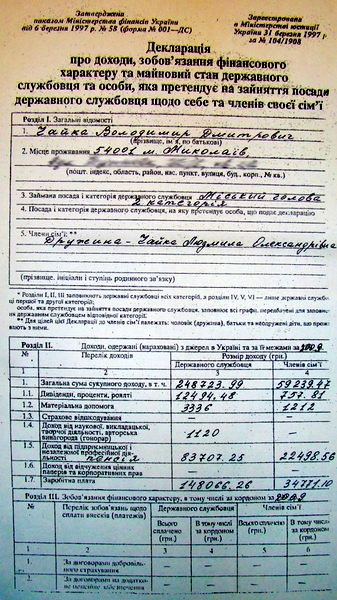 Затверджена
наказом Міністерства фінансів України
від 6 березня 1997 р. № 58 (форма № 001—ДС)
Зареєстрована
в Міністерстві юстиції
України 31 березня 1997 р.
за № 104/1908
Декларація
про доходи, зобов'язання фінансового
характеру та майновий стан державного
службовця та особи, яка претендує на зайняття посади
державного службовця щодо себе та членів своєї сім'ї
Розділ I. Загальні відомості
1. Чайка Володимир Дмитрович
(прізвище, ім'я, по батькові)
2. Місце проживання 54001 м. Миколаїв,
(пошт. індекс, область, район, нас. пункт, вулиця, буд., корп., № кв.)
3. Займана посада і категорія державного службовця Міський голова
категорія
4. Посада і категорія державного службовця, на яку претендує особа, що подає декларацію
5. Члени сім'ї: **
Дружина - Чайка Людмила Олександрівна
(прізвище, ініціали і ступінь родинного зв'язку)
* Розділи I, II, III заповнюють державні службовці всіх категорій, а розділи IV, V, VI — лише державні службовці першої та другої категорій;
особа, яка претендує на зайняття посади державного службовця, заповнює всі графи, передбачені для заповнення державним службовцем відповідного категорії.
** Для цілей цієї Декларації до членів сім'ї належать: чоловік (дружина), батьки та неодружені діти, що проживають з ними.
Розділ II. Доходи, одержані (нараховані) з джерел в Україні та за її межами за 2009
№ Перелік доходів Розмір доходу (грн.)
Державного службовця Членів сім'ї
1 2 3 4
1. Загальна сума сукупного доходу, в т. ч. 248723.99 59239.47
1.1. Дивіденди, проценти, роялті 12494,48 757.81
1.2. Матеріальна допомога 3336 1212
1.3. Страхове відшкодування — —
1.4. Дохід від наукової, викладацької, творчої діяльності, авторська винагорода (гонорар) 1120 —
1.5. Дохід від підприємницької і незалежної професійної діяльності пенсія 83707.25 22498,56
1.6. Дохід від відчуження цінних паперів та корпоративних прав — —
1.7. Заробітна плата 148066.26 34771.10
Розділ III. Зобов'язання фінансового характеру, в тому числі за кордоном за 2009
№ Перелік зобов'язань щодо сплати внесків (платежів) Державного службовця Членів сім'ї
Всього сплачено (грн.) В тому числі за кордоном (грн.) Всього сплачено (грн.) В тому числі за кордоном (грн.)
1 2 3 4 5 6
1. За договорами добровільного страхування — — — —
2. За договорами на додаткове пенсійне забезпечення — — — —